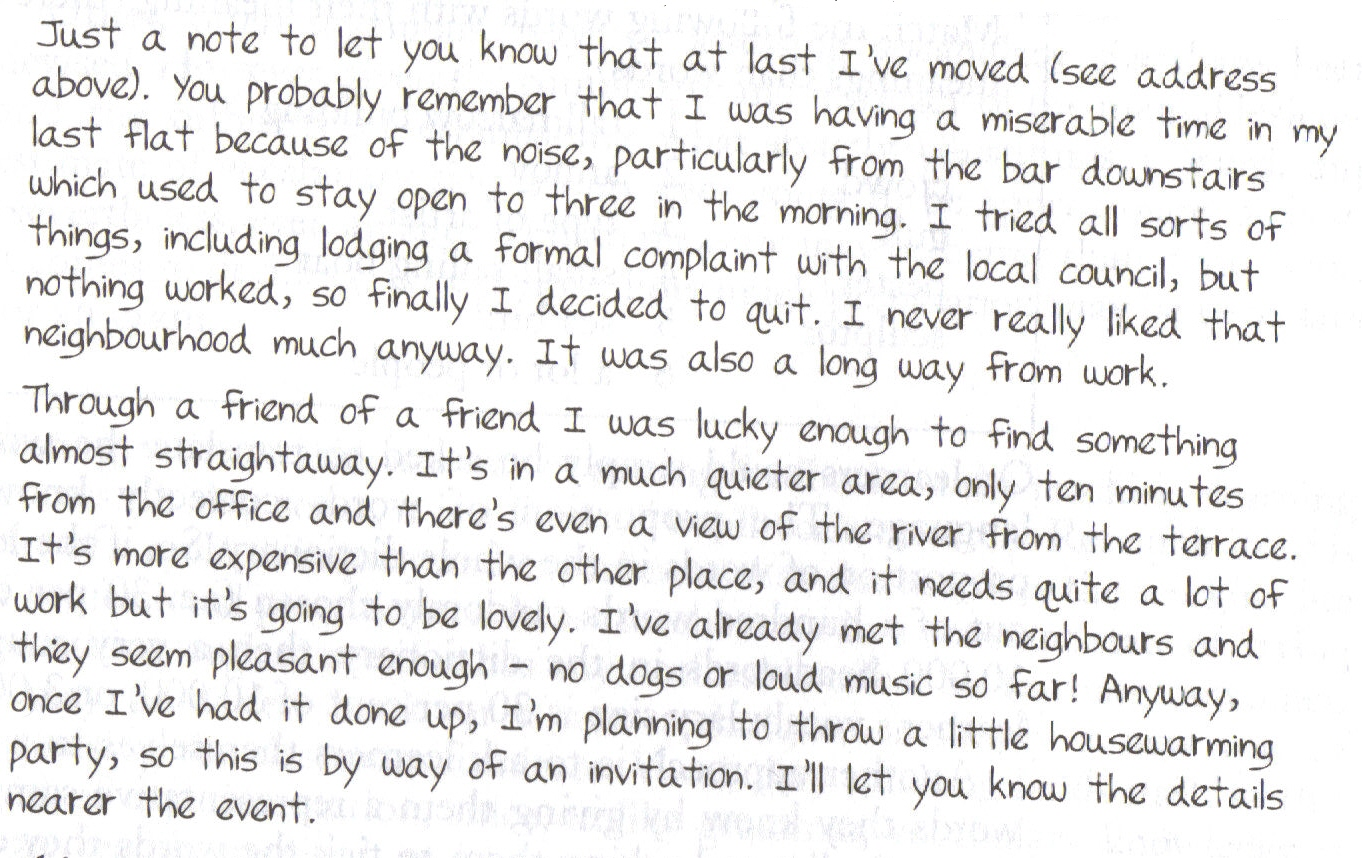 Just a note to let you know that at last I've moved (see address
above). You probably remember that I was having a miserable time in my
last flat because of the noise, particularly from the bar downstairs
which used to stay open to three in the morning. I tried all sorts of
things, including lodging a formal complaint with the local council, but
nothing worked, so finally I decided to quit. I never really liked that
neighbourhood much anyway. It was also a long way from work.
Through a friend of a friend I was lucky enough to find something
almost straightaway. It's in a much quieter area, only ten minutes
from the office and there's even a view of the river from the terrace.
It's more expensive than the other place, and it needs quite a lot of
work but it's going to be lovely. I've already met the neighbours and
they seem pleasant enough – no dogs or loud music so far! Anyway,
once I've had it done up, I'm planning to throw a little housewarming
party, so this is by way of an invitation. I'll let you know the details
nearer the event.